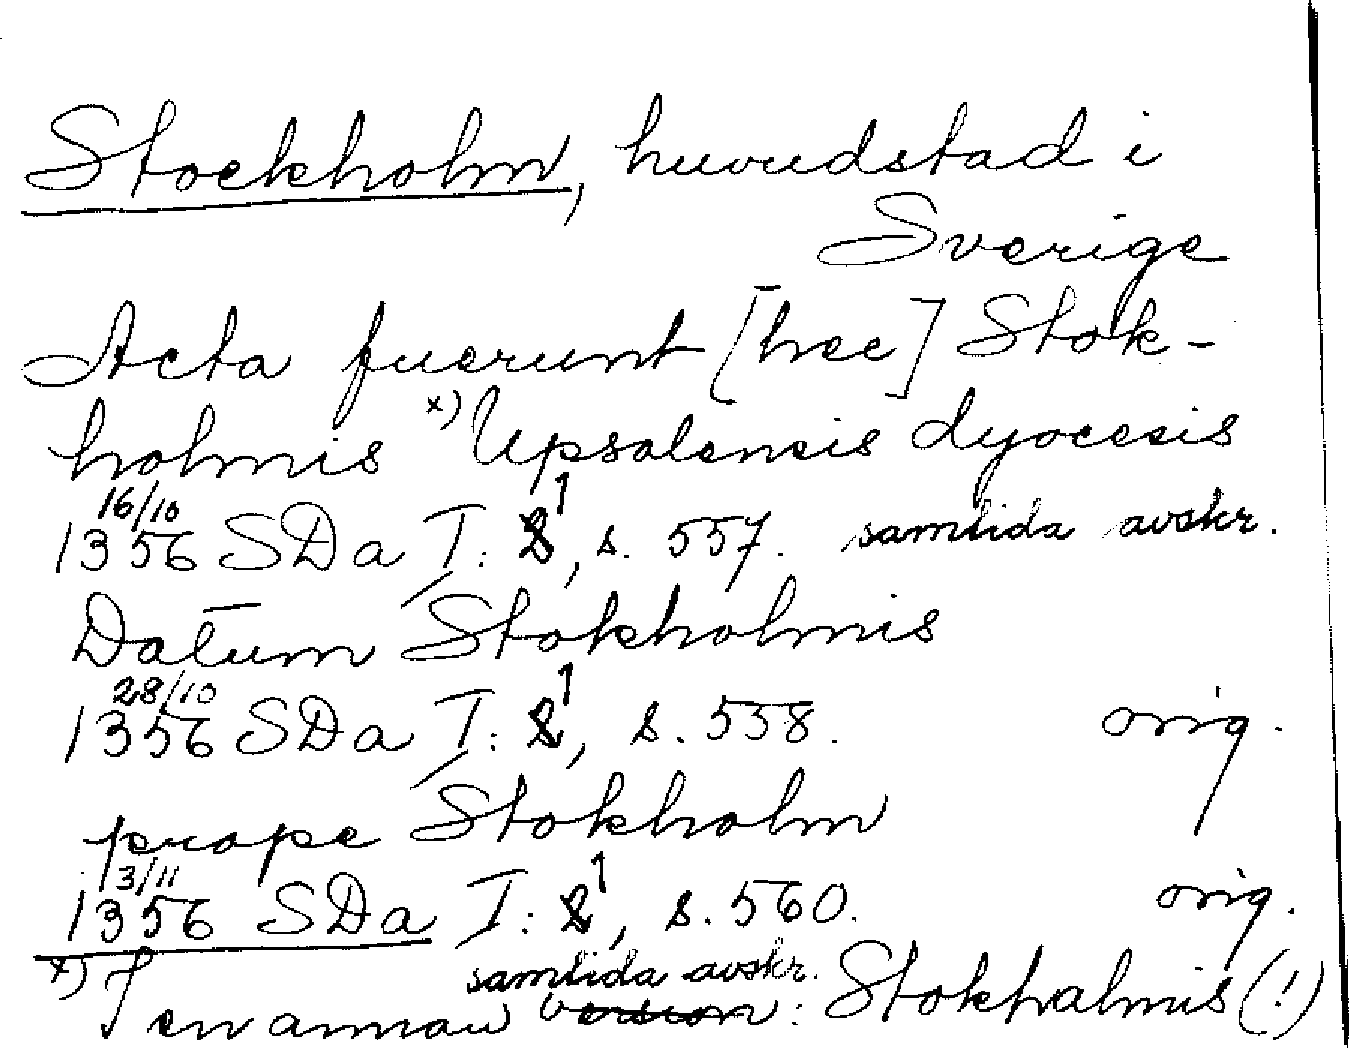 Stockholm, huvudstad i
Sverige
Acta fuerunt [hec] Stok-
holmis x) Upsalensis dyocesis
16/10
1356 SDa I: 1, s. 557. samtida avskr.
Datum Stokholmis
28/10
1356 SDa I: 1, s. 558. orig.
prope Stokholm
13/11
1356 SDa I: 1, s. 560. orig.
samtida avskr.
x) I en annan version: Stokhalmis (!)